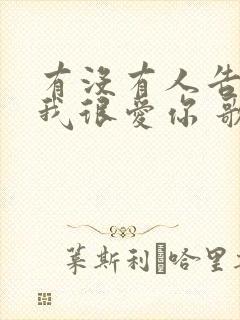 有没有人告
我很爱你 歌
莱斯利 哈里